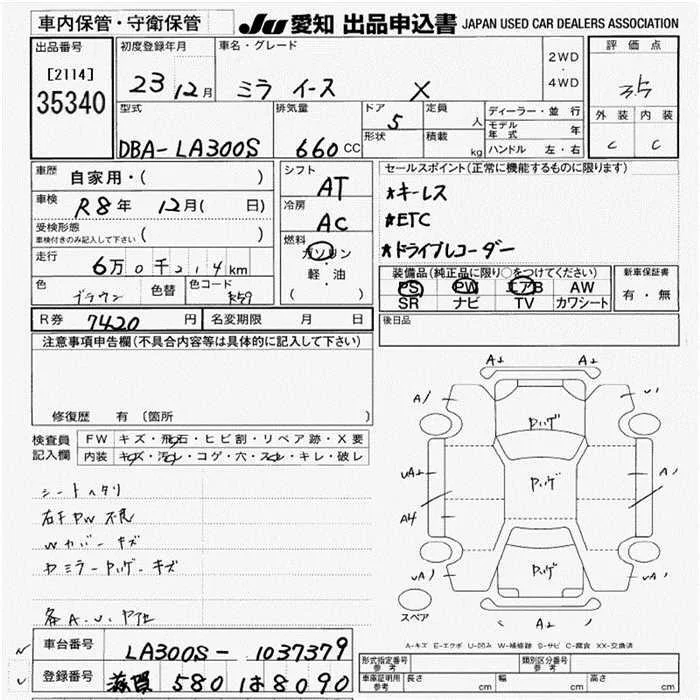 車内保管・守衛保管
JU 愛知 出品申込書 JAPAN USED CAR DEALERS ASSOCIATION
出品番号
[2114]
35340
初度登録年月
23 12月
車名・グレード
ミラ イース X
2WD
・
4WD
評価点
外装 内装
C C
型式
DBA-LA300S
排気量
660 CC
ドア
5
形状
定員
人
積載
kg
ディーラー・並行
モデル年式 年
ハンドル 左・右
車歴
自家用・( )
車検
R8年 12月( 日)
受検形態
車検付きのみ記入して下さい ( )
走行
6万0千214km
色
ブラウン
色替
色コード
シフト
AT
冷房
AC
燃料
ガソリン
・
軽・油
( )
セールスポイント(正常に機能するものに限ります)
*キーレス
*ETC
*ドライブレコーダー
装備品(純正品に限り○をつけてください)
PS PW エアB AW
SR ナビ TV カワシート
新車保証書
有・無
R券 7420 円
名変期限 月 日
後日品
注意事項申告欄(不具合内容等は具体的に記入して下さい)
修復歴 有 〔箇所 〕
検査員
記入欄
FW キズ・飛石・ヒビ割・リペア跡・X要
内装 キズ・汚れ・コゲ・穴・スレ・キレ・破レ
シートヘタリ
右FPW不良
Wカバーキズ
A2 A2
A1 U1
Pハゲ
UA2 A1
Pハゲ
A4
Pハゲ
UA1 UA1
スペア
A2
A-キズ E-エクボ U-凹み W-補修跡 S-サビ C-腐食 XX-交換済
車台番号
LA300S-1037379
登録番号
滋賀 580 は 8090
形式指定番号
参考
類別区分番号
参考
車庫証明用
参考
長さ cm 幅 cm 高さ cm